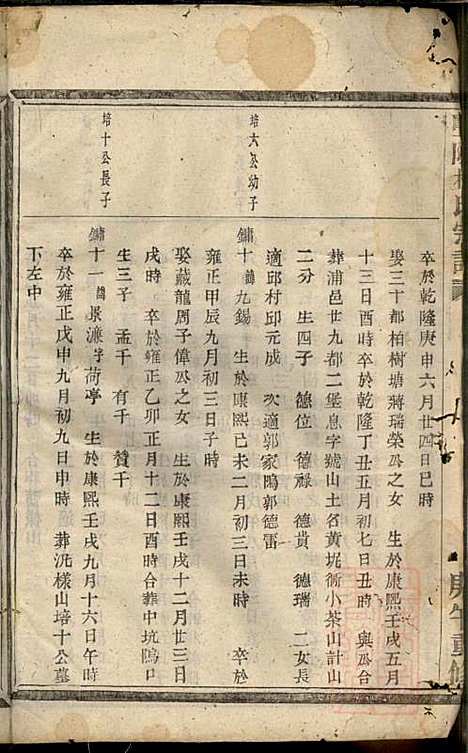 卒於乾隆庚申六月廿四日巳時
娶三十都柏樹塘蔣瑞榮公之女 生於康熙壬戌五月
十三日酉時卒於乾隆丁丑五月初七日丑時 與公合
葬浦邑廿九都二堡息字號山土名黃坭衕小茶山計山
二分 生四子 德位 德祿 德貴 德瑞 二女長
適邱村邱元成 次適郭家隖郭德雷
培六公幼子
鏞十 諱九錫 生於康熙己未二月初三日未時 卒於
雍正甲辰九月初三日子時
娶藏龍周子偉公之女 生於康熙壬戌十二月廿三日
戌時 卒於雍正乙卯正月十二日酉時合葬中坑隖口
生三子 孟千 有千 贊千
培十公長子
鏞十一 諱景濂字荷亭 生於康熙壬戌九月十六日午時
卒於雍正戊申九月初九日申時 葬洗樣山培十公墓
下左中
氏宗譜
庚午重修